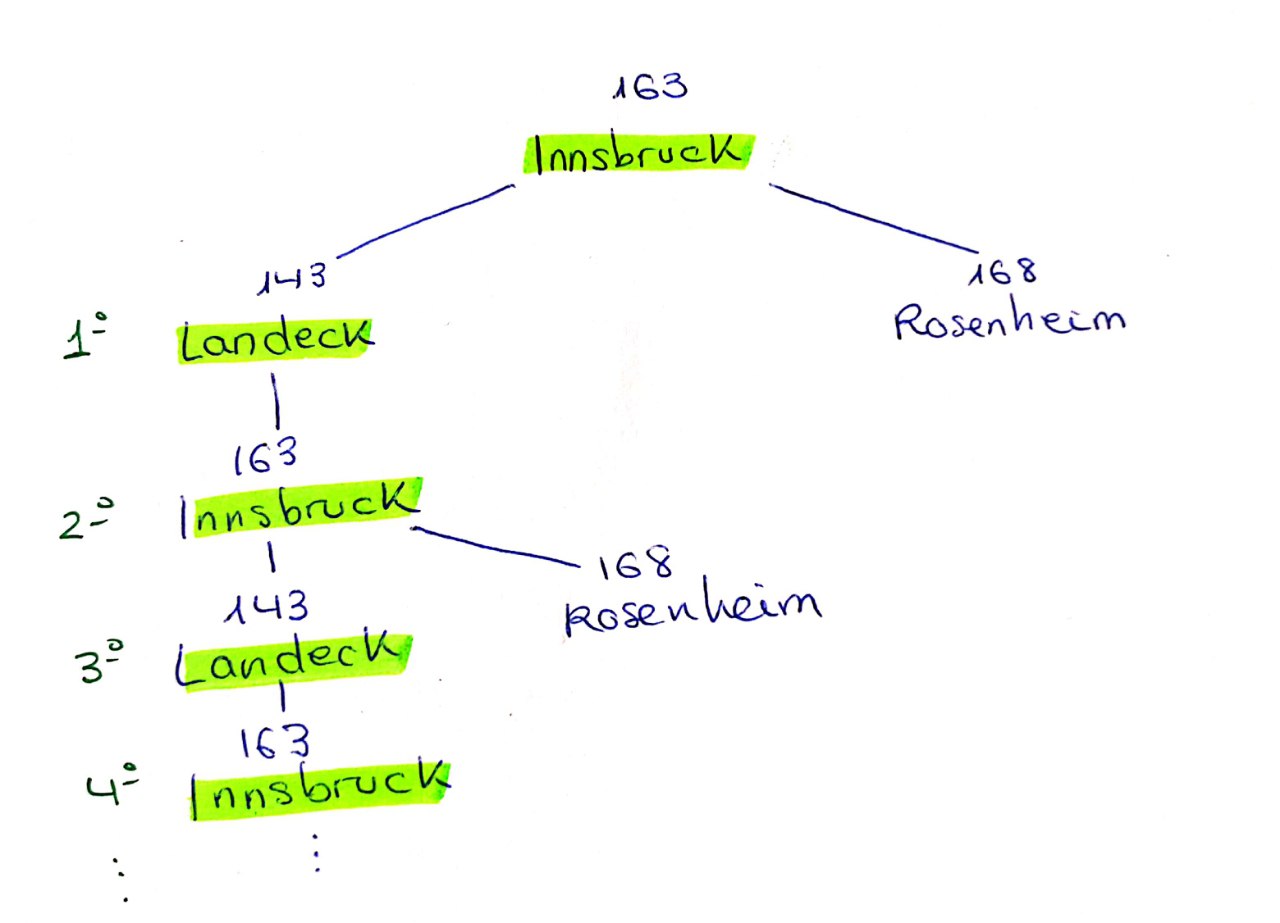 163
Innsbruck
143
168
1º Landeck
Rosenheim
163
2º Innsbruck
168
143
Rosenheim
3º Landeck
163
4º Innsbruck